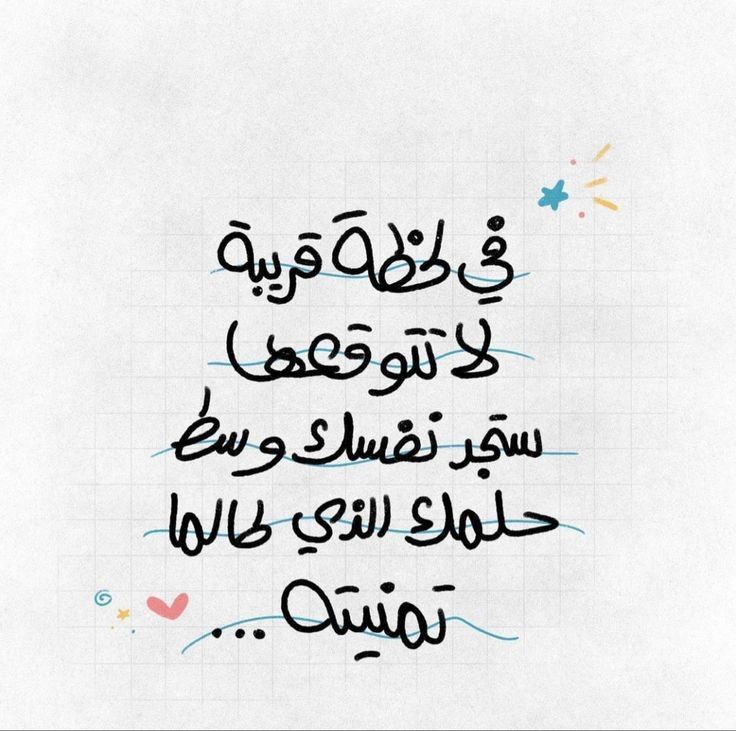 في لحظة قريبة
لا تتوقعها
ستجد نفسك وسط
حلمك الذي لطالما
تمنيته ...